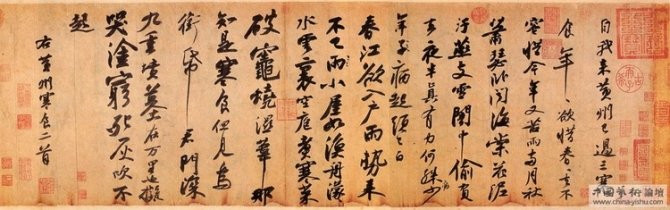 自我來黃州已過三寒
食年〻欲惜春〻去不
容惜今年又苦雨兩月秋
蕭瑟卧聞海棠花泥
汙燕支雪闇中偷負
去夜半真有力何殊少
年子病起頭已白
春江欲入戶雨勢來
不已雨小屋如漁舟濛〻
水雲裏空庖煮寒菜
破竈燒濕葦那
知是寒食但見烏
銜帋君門深
九重墳墓在万里也擬
哭塗窮死灰吹不
起
右黃州寒食二首
中國藝術論壇
www.china-yishu.com